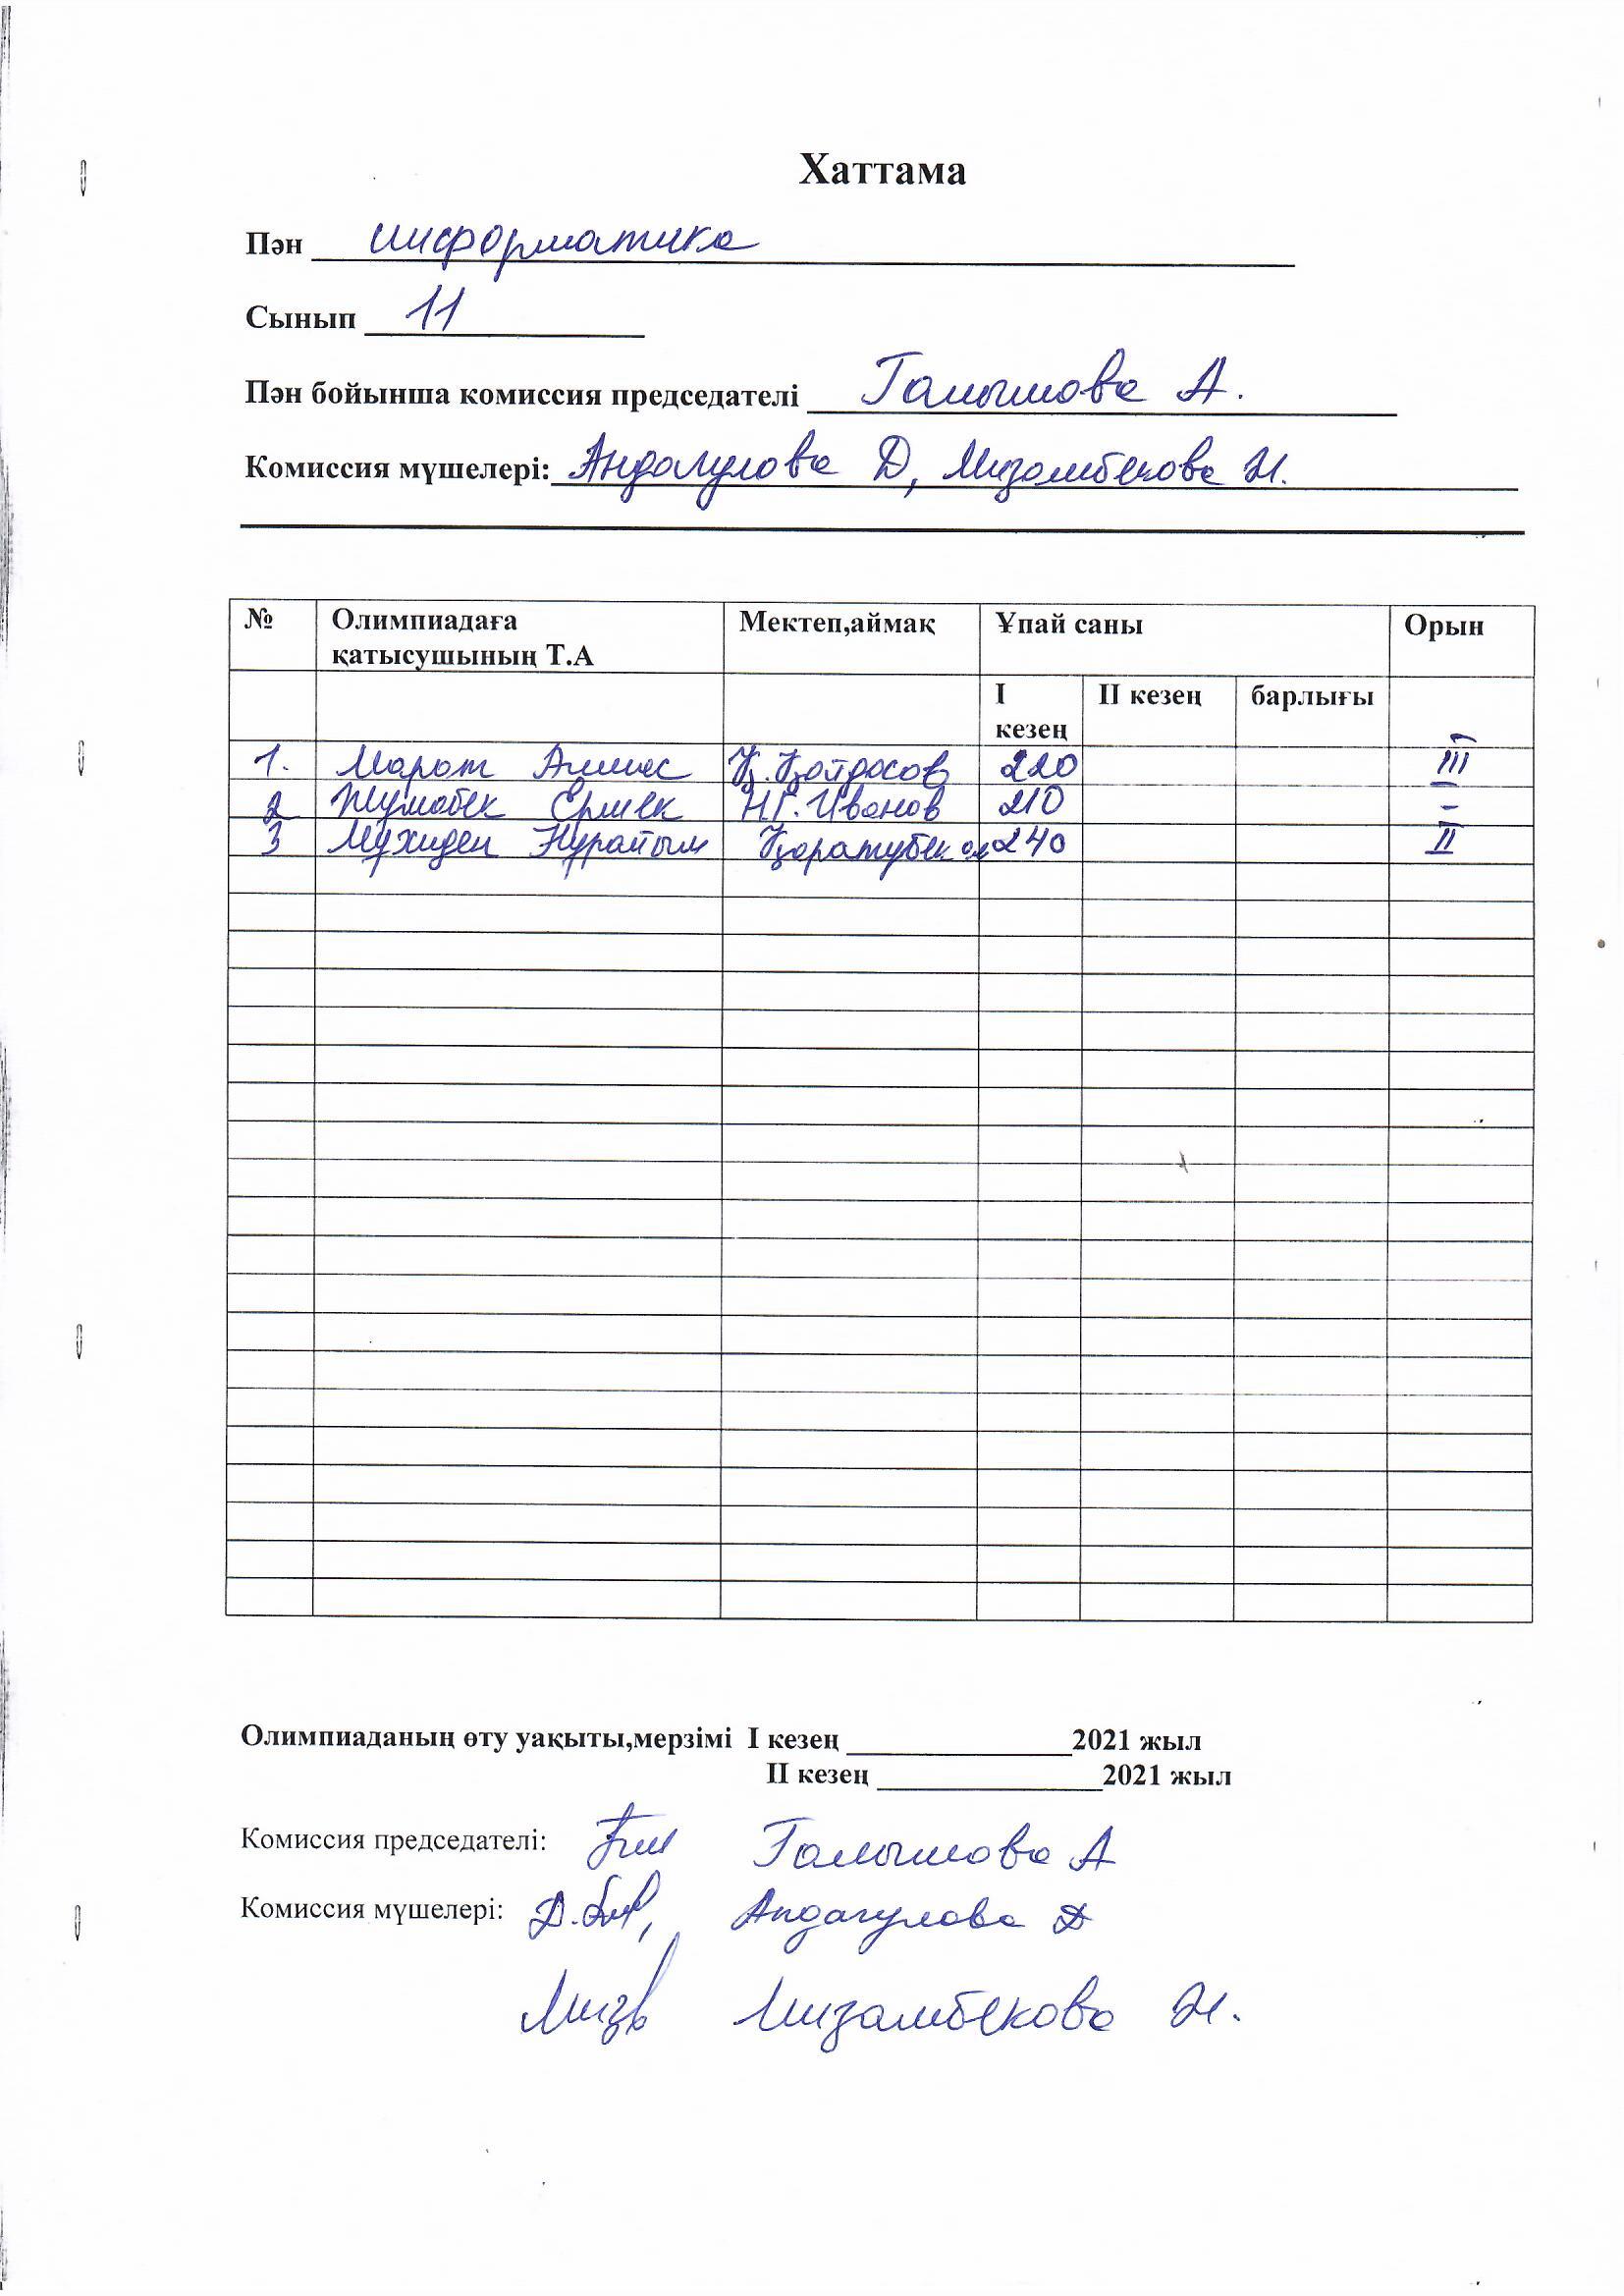 Хаттама
Пән информатика
Сынып 11
Пән бойынша комиссия председателі Галымова А.
Комиссия мүшелері: Андагулова Д, Мизамбекова Н.
№ Олимпиадаға қатысушының Т.А Мектеп,аймақ Ұпай саны Орын
І кезең ІІ кезең барлығы
1. Марат Алмас Қ. Қайдосов 220 III
2 Жұмабек Ермек Н.Г. Иванов 210 -
3 Мухиден Нұрайым Қаратүбек 240 II
Олимпиаданың өту уақыты,мерзімі І кезең 2021 жыл
ІІ кезең 2021 жыл
Комиссия председателі: Галымова А
Комиссия мүшелері: Андагулова Д
Мизамбекова Н.